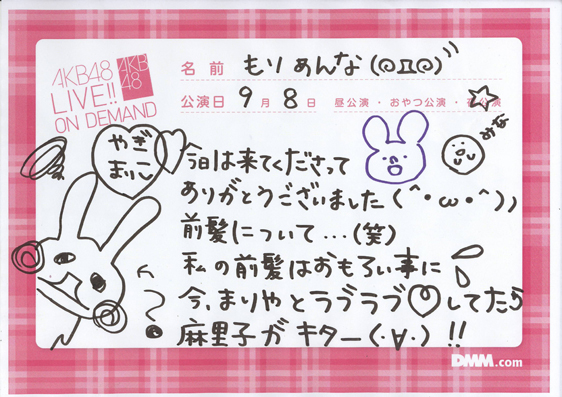 AKB48
LIVE!!
ON DEMAND
AKB
48
名前 もりあんな(๑ฅ๑)
公演日 9月8日 昼公演・おやつ公演・夜公演
やぎ
まりし
みな
今日は来てくださって
ありがとうございました(^・ω・^))
前髪について…(笑)
私の前髪はおもろい事に
今、まりやとラブラブ♡してたら
麻里子がキター(・∀・)!!
DMM.com